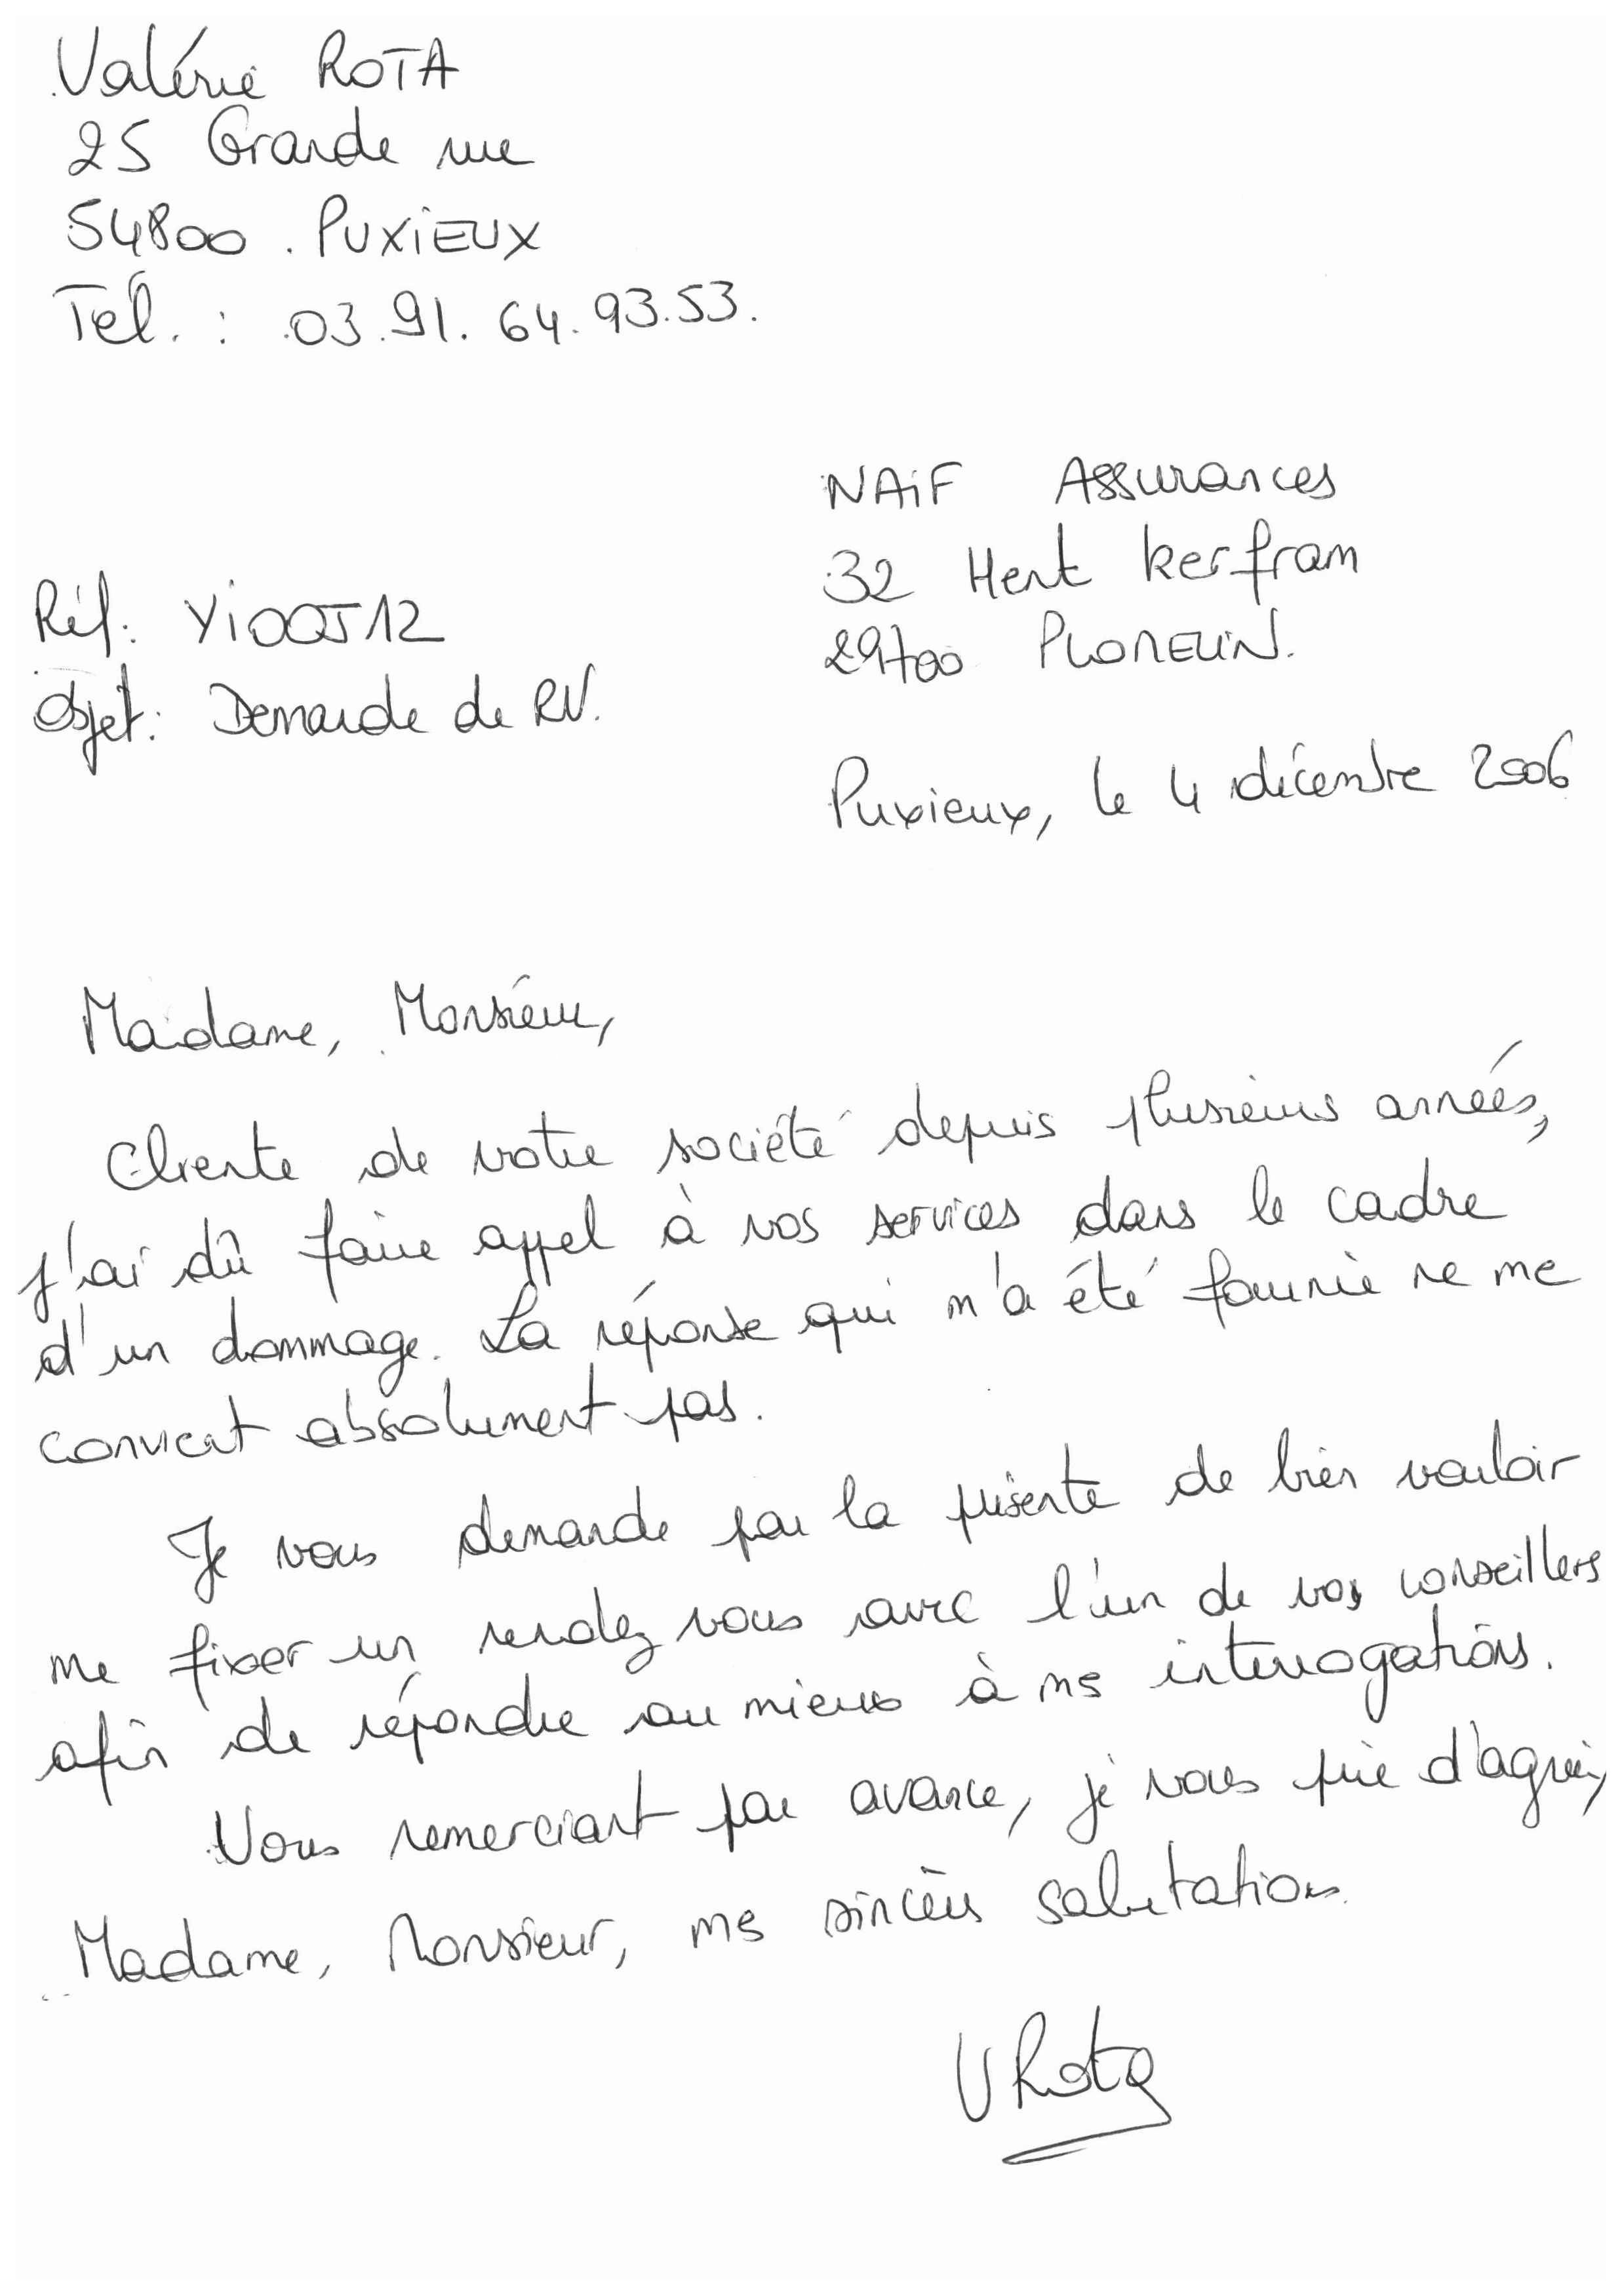 Valérie ROTA
25 Grande rue
54800 PUXiEUX
Tél. : 03.91.64.93.53.
NAiF Assurances
32 Hent kerfram
29700 PLOMELIN.
Réf: YiOOJ12
Objet: Demande de RV.
Puxieux, le 4 décembre 2006
Madame, Monsieur,
Cliente de votre société depuis plusieurs années,
j'ai dû faire appel à vos services dans le cadre
d'un dommage. La réponse qui m'a été fournie ne me
convient absolument pas.
Je vous demande par la présente de bien vouloir
me fixer un rendez vous avec l'un de vos conseillers
afin de répondre au mieux à mes interrogations.
Vous remerciant par avance, je vous prie d'agréer,
Madame, Monsieur, mes sincères salutations.
VRota